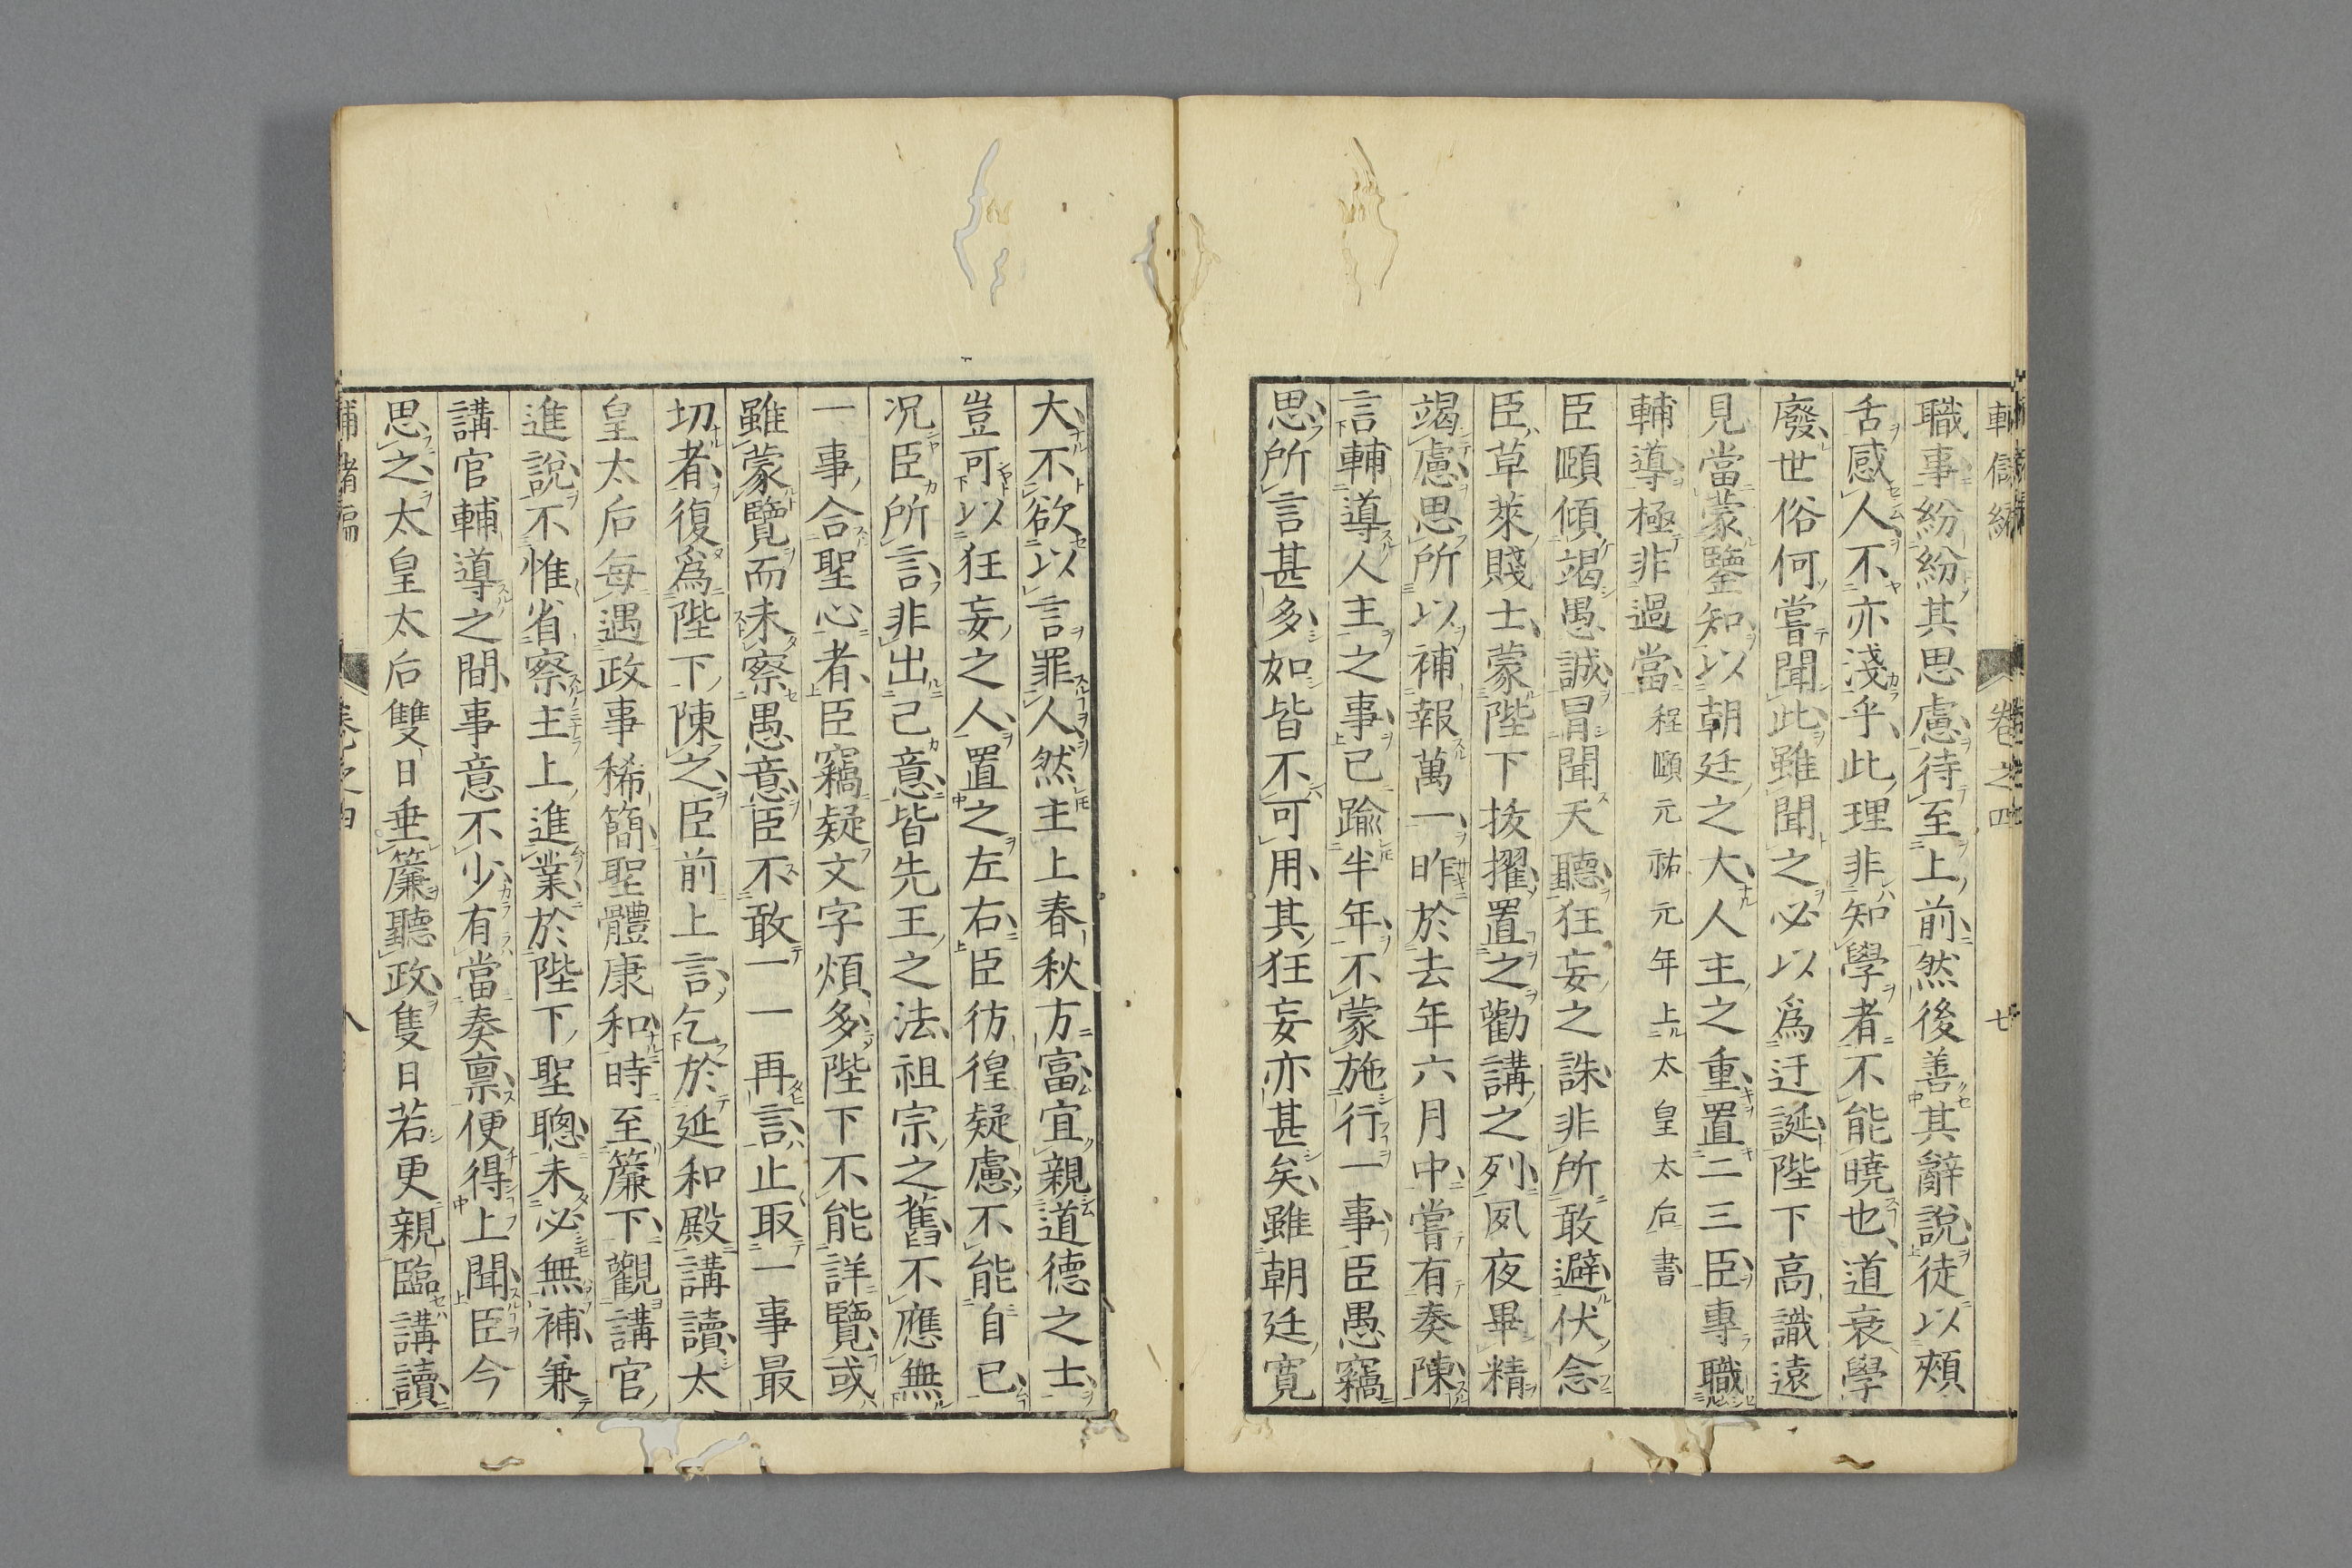 職事紛紛其思慮待至上前然後善其辭說徒以頰
舌感人不亦淺乎此理非知學者不能曉也道衰學
廢世俗何嘗聞此雖聞之必以爲迂誕陛下高識遠
見當蒙鑒知以朝廷之大人主之重置二三臣專職
輔導極非過當程頤元祐元年上太皇太后書
臣頤傾竭愚誠冒聞天聽狂妄之誅非所敢避伏念
臣草萊賤士蒙陛下拔擢置之勸講之列夙夜畢精
竭慮思所以補報萬一昨於去年六月中嘗有奏陳
言輔導人主之事已踰半年不蒙施行一事臣愚竊
思所言甚多如皆不可用其狂妄亦甚矣雖朝廷寬
大不欲以言罪人然主上春秋方富宜親道德之士
豈可以狂妄之人置之左右臣彷徨疑慮不能自已
况臣所言非出己意皆先王之法祖宗之舊不應無
一事合聖心者臣竊疑文字煩多陛下不能詳覽或
雖蒙覽而未察愚意臣不敢一一再言止取一事最
切者復爲陛下陳之臣前上言乞於延和殿講讀太
皇太后每遇政事稀簡聖體康和時至簾下觀講官
進說不惟省察主上進業於陛下聖聰未必無補兼
講官輔導之間事意不少有當奏禀便得上聞臣今
思之太皇太后雙日垂簾聽政隻日若更親臨講讀